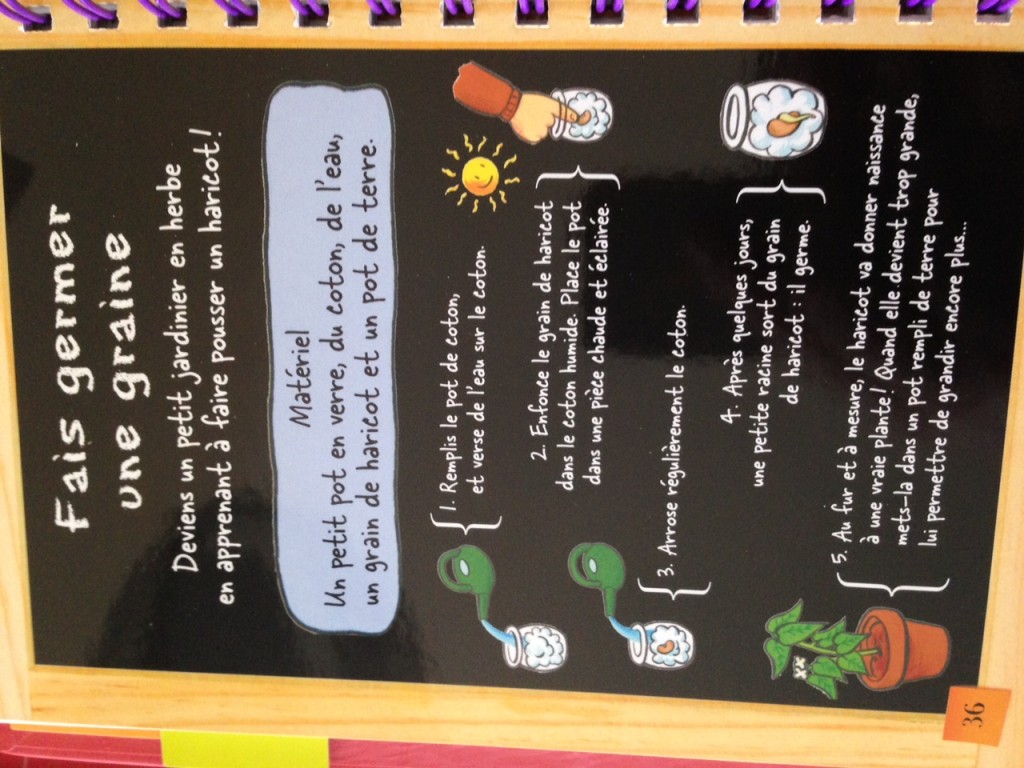 Fais germer
une graine
Deviens un petit jardinier en herbe
en apprenant à faire pousser un haricot!
Matériel
Un petit pot en verre, du coton, de l'eau,
un grain de haricot et un pot de terre.
1. Remplis le pot de coton,
et verse de l'eau sur le coton.
2. Enfonce le grain de haricot
dans le coton humide. Place le pot
dans une pièce chaude et éclairée.
3. Arrose régulièrement le coton.
4. Après quelques jours,
une petite racine sort du grain
de haricot : il germe.
5. Au fur et à mesure, le haricot va donner naissance
à une vraie plante! Quand elle devient trop grande,
mets-la dans un pot rempli de terre pour
lui permettre de grandir encore plus...
36